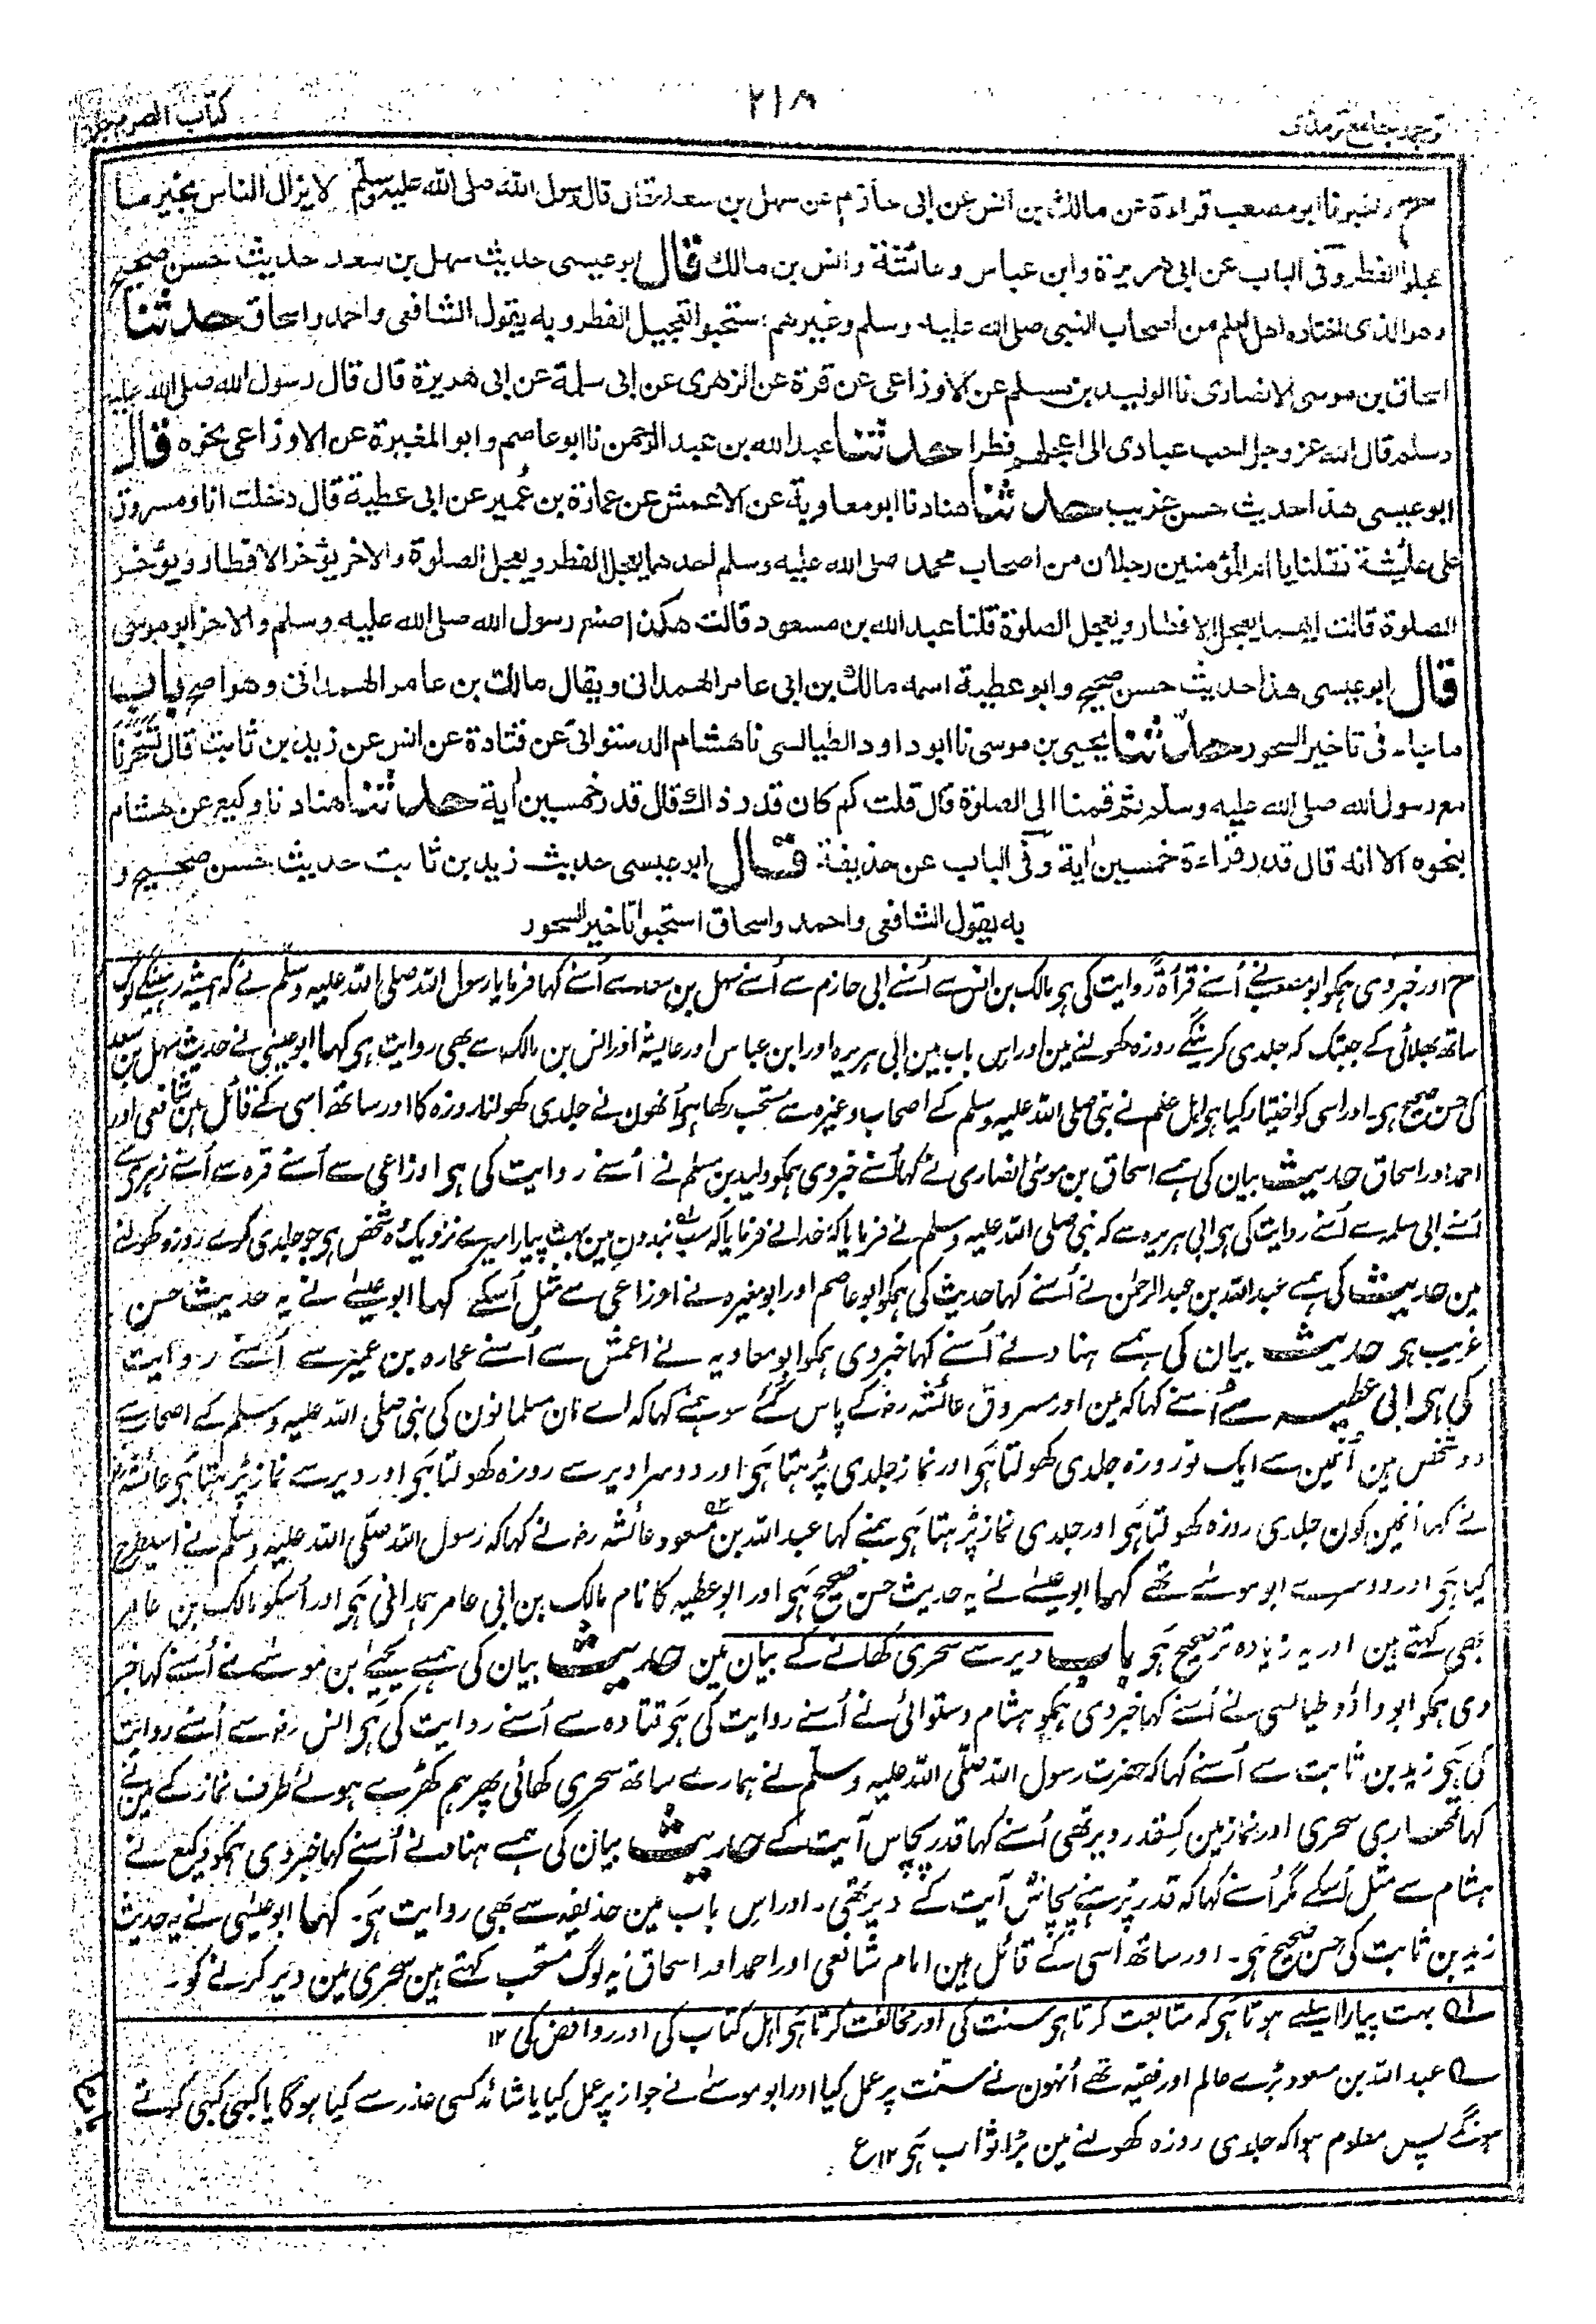 ترجمہ جامع ترمذی
۲۱۸
کتاب الصوم جلد
ح واخبرنا ابو مصعب قراءة عن مالك بن انس عن ابی حازم عن سهل بن سعد قال قال رسول الله صلى الله عليه وسلم لا يزال الناس بخير ما
عجلوا الفطر وفی الباب عن ابی هريرة وابن عباس وعائشة وانس بن مالك قال ابو عيسى حديث سهل بن سعد حديث حسن صحيح
وهو الذى اختاره اهل العلم من اصحاب النبى صلى الله عليه وسلم وغيرهم استحبوا تعجيل الفطر وبه يقول الشافعى واحمد واسحاق حدثنا
اسحاق بن موسى الانصارى نا الوليد بن مسلم عن الاوزاعى عن قرة عن الزهرى عن ابى سلمة عن ابى هريرة قال قال رسول الله صلى الله عليه
وسلم قال الله عز وجل احب عبادى الى اعجلهم فطرا حدثنا عبد الله بن عبد الرحمن نا ابو عاصم وابو المغيرة عن الاوزاعى بنحوه قال
ابو عيسى هذا حديث حسن غريب حدثنا هناد نا ابو معاوية عن الاعمش عن عمارة بن عمير عن ابى عطية قال دخلت انا ومسروق
على عائشة فقلنا يا ام المؤمنين رجلان من اصحاب محمد صلى الله عليه وسلم احدهما يعجل الفطر ويعجل الصلوة والاخر يؤخر الافطار ويؤخر
الصلوة قالت ايهما يعجل الافطار ويعجل الصلوة قلنا عبد الله بن مسعود قالت هكذا صنع رسول الله صلى الله عليه وسلم والاخر ابو موسى
قال ابو عيسى هذا حديث حسن صحيح وابو عطية اسمه مالك بن ابى عامر الهمدانى ويقال مالك بن عامر الهمدانى وهو اصح باب
ما جاء فى تاخير السحور حدثنا يحيى بن موسى نا ابو داود الطيالسى نا هشام الدستوائى عن قتادة عن انس عن زيد بن ثابت قال تسحرنا
مع رسول الله صلى الله عليه وسلم ثم قمنا الى الصلوة قال قلت كم كان قدر ذاك قال قدر خمسين اية حدثنا هناد نا وكيع عن هشام
بنحوه الا انه قال قدر قراءة خمسين اية وفى الباب عن حذيفة قال ابو عيسى حديث زيد بن ثابت حديث حسن صحيح و
به يقول الشافعى واحمد واسحاق استحبوا تاخير السحور
ح اور خبر دی ہمکو ابو مصعب نے اُسنے قرأۃً روایت کی ہی مالک بن انس سے اُسنے ابی حازم سے اُسنے سہل بن سعد سے اُسنے کہا فرمایا رسول اللہ صلی اللہ علیہ وسلم نے کہ ہمیشہ رہینگے لوگ
ساتھ بھلائی کے جبتک کہ جلدی کرینگے روزہ کھولنے مین اور اس باب مین ابی ہریرہ اور ابن عباس اور عایشہ اور انس بن مالک سے بھی روایت ہی کہا ابو عیسٰی نے حدیث سہل بن سعد
کی حسن صحیح ہی اور اسی کو اختیار کیا ہی اہل علم نے نبی صلی اللہ علیہ وسلم کے اصحاب وغیرہ سے مستحب رکھا ہی اُنھون نے جلدی کھولنا روزہ کا اور ساتھ اسی کے قائل ہین شافعی اور
احمد اور اسحاق حدیث بیان کی ہمسے اسحاق بن موسٰی انصاری نے کہا اُسنے خبر دی ہمکو ولید بن مسلم نے اُسنے روایت کی ہی اوزاعی سے اُسنے قرہ سے اُسنے زہری سے
اُسنے ابی سلمہ سے اُسنے روایت کی ہی ابی ہریرہ سے کہ نبی صلی اللہ علیہ وسلم نے فرمایا کہ خدا نے فرمایا کہ سب بندون مین بہت پیارا میرے نزدیک وہ شخص ہی جو جلدی کرے روزہ کھولنے
مین حدیث کی ہمسے عبد اللہ بن عبد الرحمٰن نے اُسنے کہا حدیث کی ہمکو ابو عاصم اور ابو مغیرہ نے اوزاعی سے مثل اُسکے کہا ابو عیسٰے نے یہ حدیث حسن
غریب ہی حدیث بیان کی ہمسے ہناد نے اُسنے کہا خبر دی ہمکو ابو معاویہ نے اعمش سے اُسنے عمارہ بن عمیر سے اُسنے روایت
کی ہی ابی عطیہ سے اُسنے کہا کہ مین اور مسروق عائشہ رض کے پاس گئے سو ہمنے کہا کہ اے مان مسلمانون کی نبی صلی اللہ علیہ وسلم کے اصحاب سے
دو شخص ہین اُنمین سے ایک تو روزہ جلدی کھولتا ہَی اور نماز جلدی پڑہتا ہَی اور دوسرا دیر سے روزہ کھولتا ہَی اور دیر سے نماز پڑہتا ہَی عائشہ رض
نے کہا اُنمین کون جلدی روزہ کھولتا ہَی اور جلدی نماز پڑہتا ہَی ہمنے کہا عبد اللہ بن مسعود عائشہ رض نے کہا کہ رسول اللہ صلّی اللہ علیہ وسلّم نے اسیطرح
کیا ہَی اور دوسرے ابو موسٰے تھے کہا ابو عیسٰے نے یہ حدیث حسن صحیح ہَی اور ابو عطیہ کا نام مالک بن ابی عامر ہمدانی ہَی اور اُسکو مالک بن عامر
بھی کہتے ہین اور یہ زیادہ تر صحیح ہَی باب دیر سے سحری کھانے کے بیان مین حدیث بیان کی ہمسے یحیےٰ بن موسٰے نے اُسنے کہا خبر
دی ہمکو ابو داؤد طیالسی نے اُسنے کہا خبر دی ہمکو ہشام دستوائی نے اُسنے روایت کی ہَی قتادہ سے اُسنے روایت کی ہَی انس رض سے اُسنے روایت
کی ہَی زید بن ثابت سے اُسنے کہا کہ حضرت رسول اللہ صلّی اللہ علیہ وسلّم نے ہمارے ساتھ سحری کھائی پھر ہم کھڑے ہوئے طرف نماز کے مین نے
کہا تمھاری سحری اور نماز مین کسقدر دیر تھی اُسنے کہا قدر پچاس آیت کے حدیث بیان کی ہمسے ہناد نے اُسنے کہا خبر دی ہمکو وکیع نے
ہشام سے مثل اُسکے مگر اُسنے کہا کہ قدر پڑہنے پچاس آیت کے دیر تھی۔ اور اس باب مین حذیفہ سے بھی روایت ہَی۔ کہا ابو عیسٰی نے یہ حدیث
زید بن ثابت کی حسن صحیح ہَی۔ اور ساتھ اُسی کے قائل ہین امام شافعی اور احمد اور اسحاق یہ لوگ مستحب کہتے ہین سحری مین دیر کرنے کو۔
۱؎ بہت پیارا اسلیے ہوتا ہَی کہ متابعت کرتا ہَی سنت کی اور مخالفت کرتا ہَی اہل کتاب کی اور روافض کی ۱۲
۲؎ عبد اللہ بن مسعود بڑے عالم اور فقیہ تھے اُنہون نے سنّت پر عمل کیا اور ابو موسٰے نے جواز پر عمل کیا یا شائد کسی عذر سے کیا ہوگا یا کبھی کبھی کرتے
ہونگے پس معلوم ہوا کہ جلدی روزہ کھولنے مین بڑا ثواب ہَی ۱۲ ع